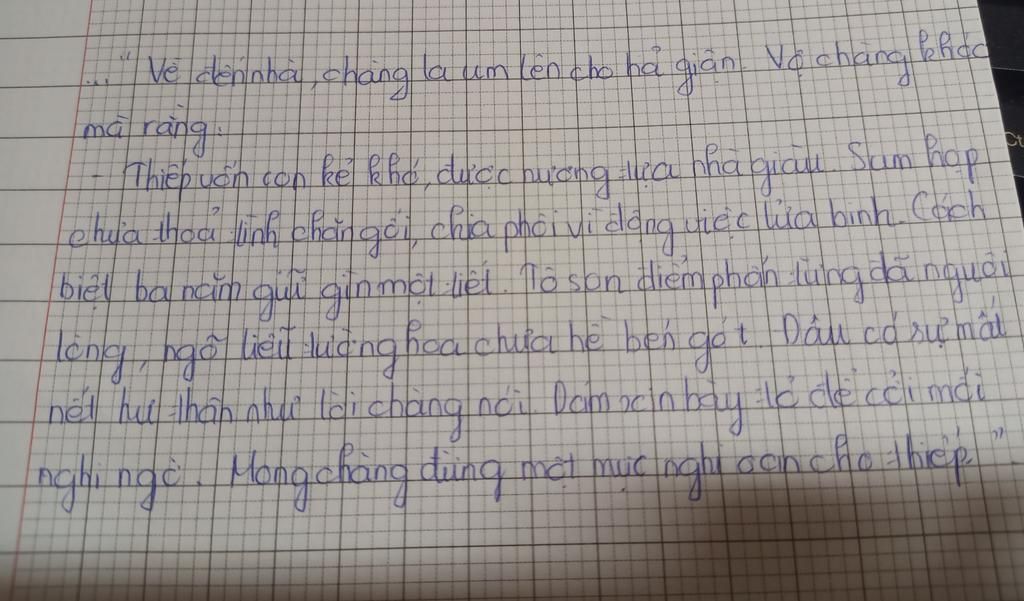 ..." Về đến nhà, chàng la um lên cho hả giận. Vợ chàng khóc
mà rằng:
- Thiếp vốn con kẻ khó, được nương tựa nhà giàu. Sum họp
chưa thoả tình chăn gối, chia phôi vì động việc lửa binh. Cách
biệt ba năm giữ gìn một tiết. Tô son điểm phấn từng đã nguôi
lòng, ngõ liễu tường hoa chưa hề bén gót. Đâu có sự mất
nết hư thân như lời chàng nói. Dám xin bày tỏ để cởi mối
nghi ngờ. Mong chàng đừng một mực nghi oan cho thiếp"